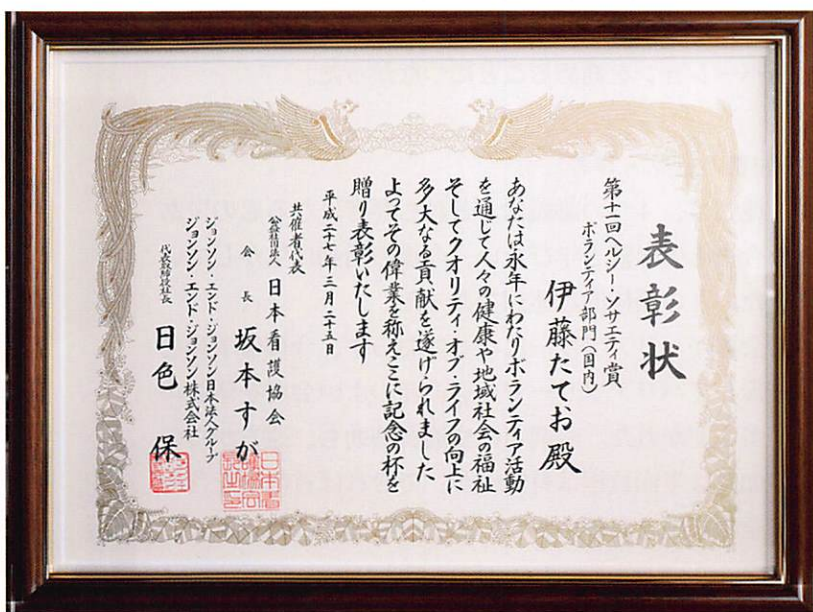 表彰状
第十一回ヘルシー・ソサエティ賞
ボランティア部門(国内)
伊藤たてお殿
あなたは永年にわたりボランティア活動
を通じて人々の健康や地域社会の福祉
そしてクオリティ・オブ・ライフの向上に
多大なる貢献を遂げられました
よってその偉業を称えここに記念の杯を
贈り表彰いたします
平成二十七年三月二十五日
共催者代表
公益社団法人 日本看護協会
会長 坂本すが
ジョンソン・エンド・ジョンソン日本法人グループ
ジョンソン・エンド・ジョンソン株式会社
代表取締役社長 日色保